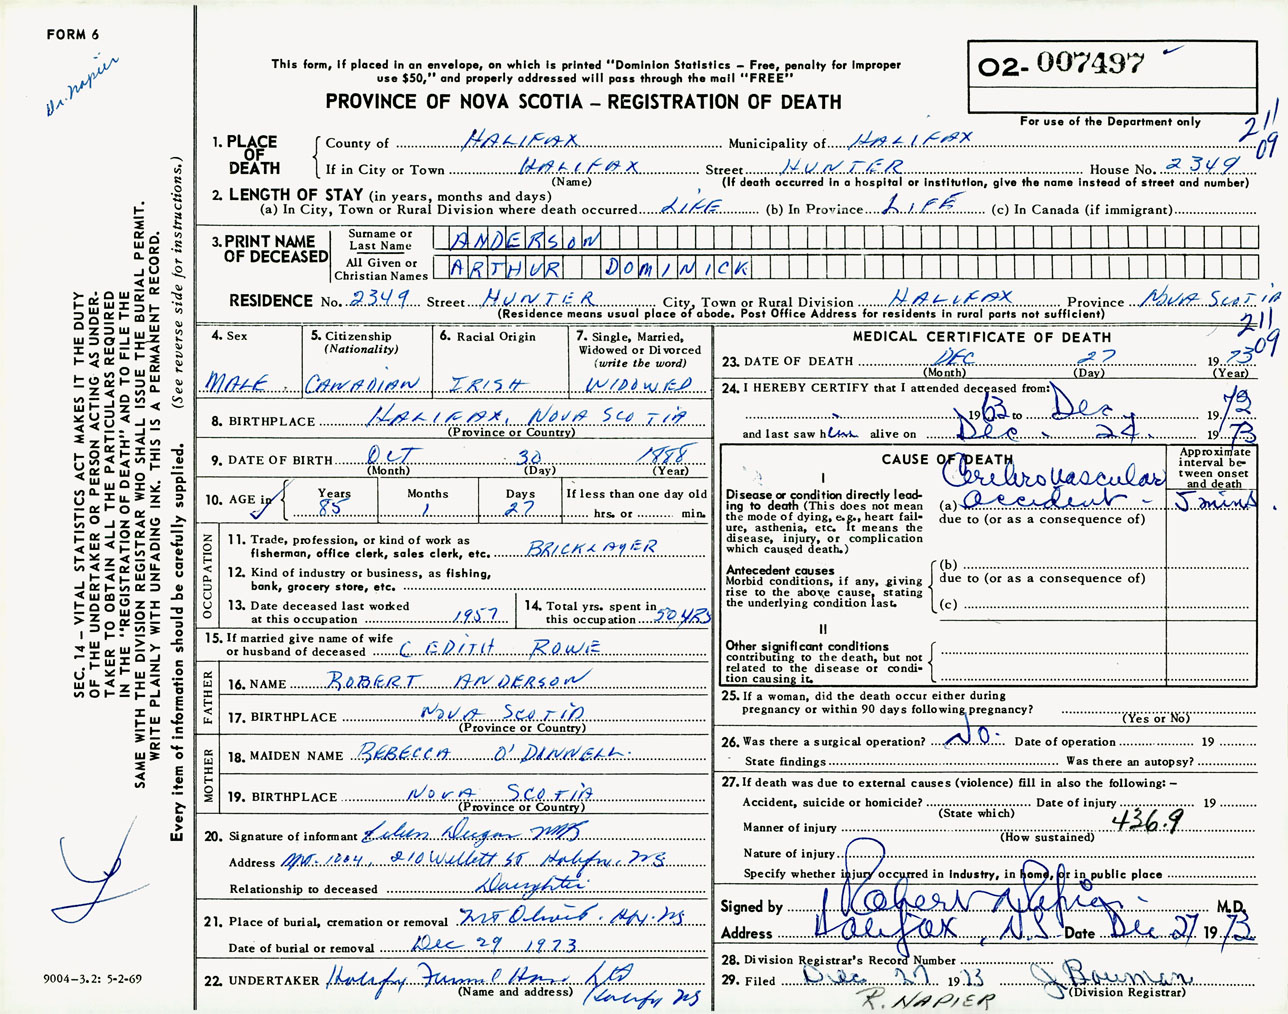 FORM 6
Dr. Napier
This form, if placed in an envelope, on which is printed "Dominion Statistics – Free, penalty for improper
use $50," and properly addressed will pass through the mail "FREE"
PROVINCE OF NOVA SCOTIA – REGISTRATION OF DEATH
O2- 007497
For use of the Department only
211
09
1. PLACE OF DEATH
County of HALIFAX Municipality of HALIFAX
If in City or Town HALIFAX Street HUNTER House No. 2349
(Name) (If death occurred in a hospital or institution, give the name instead of street and number)
2. LENGTH OF STAY (in years, months and days)
(a) In City, Town or Rural Division where death occurred LIFE (b) In Province LIFE (c) In Canada (if immigrant)
3. PRINT NAME OF DECEASED
Surname or Last Name ANDERSON
All Given or Christian Names ARTHUR DOMINICK
RESIDENCE No. 2349 Street HUNTER City, Town or Rural Division HALIFAX Province NOVA SCOTIA
(Residence means usual place of abode. Post Office Address for residents in rural parts not sufficient)
211
09
4. Sex
MALE
5. Citizenship
(Nationality)
CANADIAN
6. Racial Origin
IRISH
7. Single, Married,
Widowed or Divorced
(write the word)
WIDOWED
8. BIRTHPLACE HALIFAX, NOVA SCOTIA
(Province or Country)
9. DATE OF BIRTH OCT 30 1888
(Month) (Day) (Year)
10. AGE in
Years Months Days If less than one day old
85 1 27 hrs. or min.
OCCUPATION
11. Trade, profession, or kind of work as
fisherman, office clerk, sales clerk, etc. BRICKLAYER
12. Kind of industry or business, as fishing,
bank, grocery store, etc.
13. Date deceased last worked
at this occupation 1957
14. Total yrs. spent in
this occupation 50 YRS
15. If married give name of wife
or husband of deceased C EDITH ROWE
FATHER
16. NAME ROBERT ANDERSON
17. BIRTHPLACE NOVA SCOTIA
(Province or Country)
MOTHER
18. MAIDEN NAME REBECCA O'DONNELL
19. BIRTHPLACE NOVA SCOTIA
(Province or Country)
20. Signature of informant
Address 210 Willett St Halifax, NS
Relationship to deceased Daughter
21. Place of burial, cremation or removal Mt Olivet. Hfx. NS
Date of burial or removal Dec 29 1973
22. UNDERTAKER Halifax Funeral Home Ltd
(Name and address) Halifax NS
MEDICAL CERTIFICATE OF DEATH
23. DATE OF DEATH DEC 27 1973
(Month) (Day) (Year)
24. I HEREBY CERTIFY that I attended deceased from:
1963 to Dec. 1973
and last saw him alive on Dec. 24. 1973
CAUSE OF DEATH
Approximate
interval be-
tween onset
and death
I
Disease or condition directly lead-
ing to death (This does not mean
the mode of dying, e.g., heart fail-
ure, asthenia, etc. It means the
disease, injury, or complication
which caused death.)
Cerebrovascular
(a) accident - 5 mins.
due to (or as a consequence of)
Antecedent causes
Morbid conditions, if any, giving
rise to the above cause, stating
the underlying condition last.
(b)
due to (or as a consequence of)
(c)
II
Other significant conditions
contributing to the death, but not
related to the disease or condi-
tion causing it.
25. If a woman, did the death occur either during
pregnancy or within 90 days following pregnancy?
(Yes or No)
26. Was there a surgical operation? No. Date of operation 19
State findings Was there an autopsy?
27. If death was due to external causes (violence) fill in also the following: –
Accident, suicide or homicide? Date of injury 19
(State which)
Manner of injury 436.9
(How sustained)
Nature of injury
Specify whether injury occurred in industry, in home, or in public place
Signed by Robert Napier M.D.
Address Halifax, N.S. Date Dec 27 1973
28. Division Registrar's Record Number
29. Filed Dec. 27 1973 J Bowman
(Division Registrar)
R. NAPIER
SEC. 14 – VITAL STATISTICS ACT MAKES IT THE DUTY
OF THE UNDERTAKER OR PERSON ACTING AS UNDER-
TAKER TO OBTAIN ALL THE PARTICULARS REQUIRED
IN THE "REGISTRATION OF DEATH" AND TO FILE THE
SAME WITH THE DIVISION REGISTRAR WHO SHALL ISSUE THE BURIAL PERMIT.
WRITE PLAINLY WITH UNFADING INK. THIS IS A PERMANENT RECORD.
Every item of information should be carefully supplied. (See reverse side for instructions.)
9004-3.2: 5-2-69